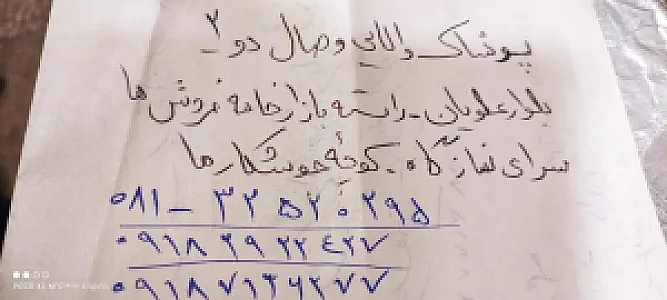 پوشاک والایی وصال دو ۲
بلوار علویان - راسته بازار خامه فروش ها
سرای نمازگاه - کوچهٔ جوشکارها
۰۸۱ - ۳۲ ۵۲۰۲۹۵
۰۹۱۸ ۲۹ ۲۲ ٤۲۷
۰۹۱۸ ۷۱۳۶۲۷۷